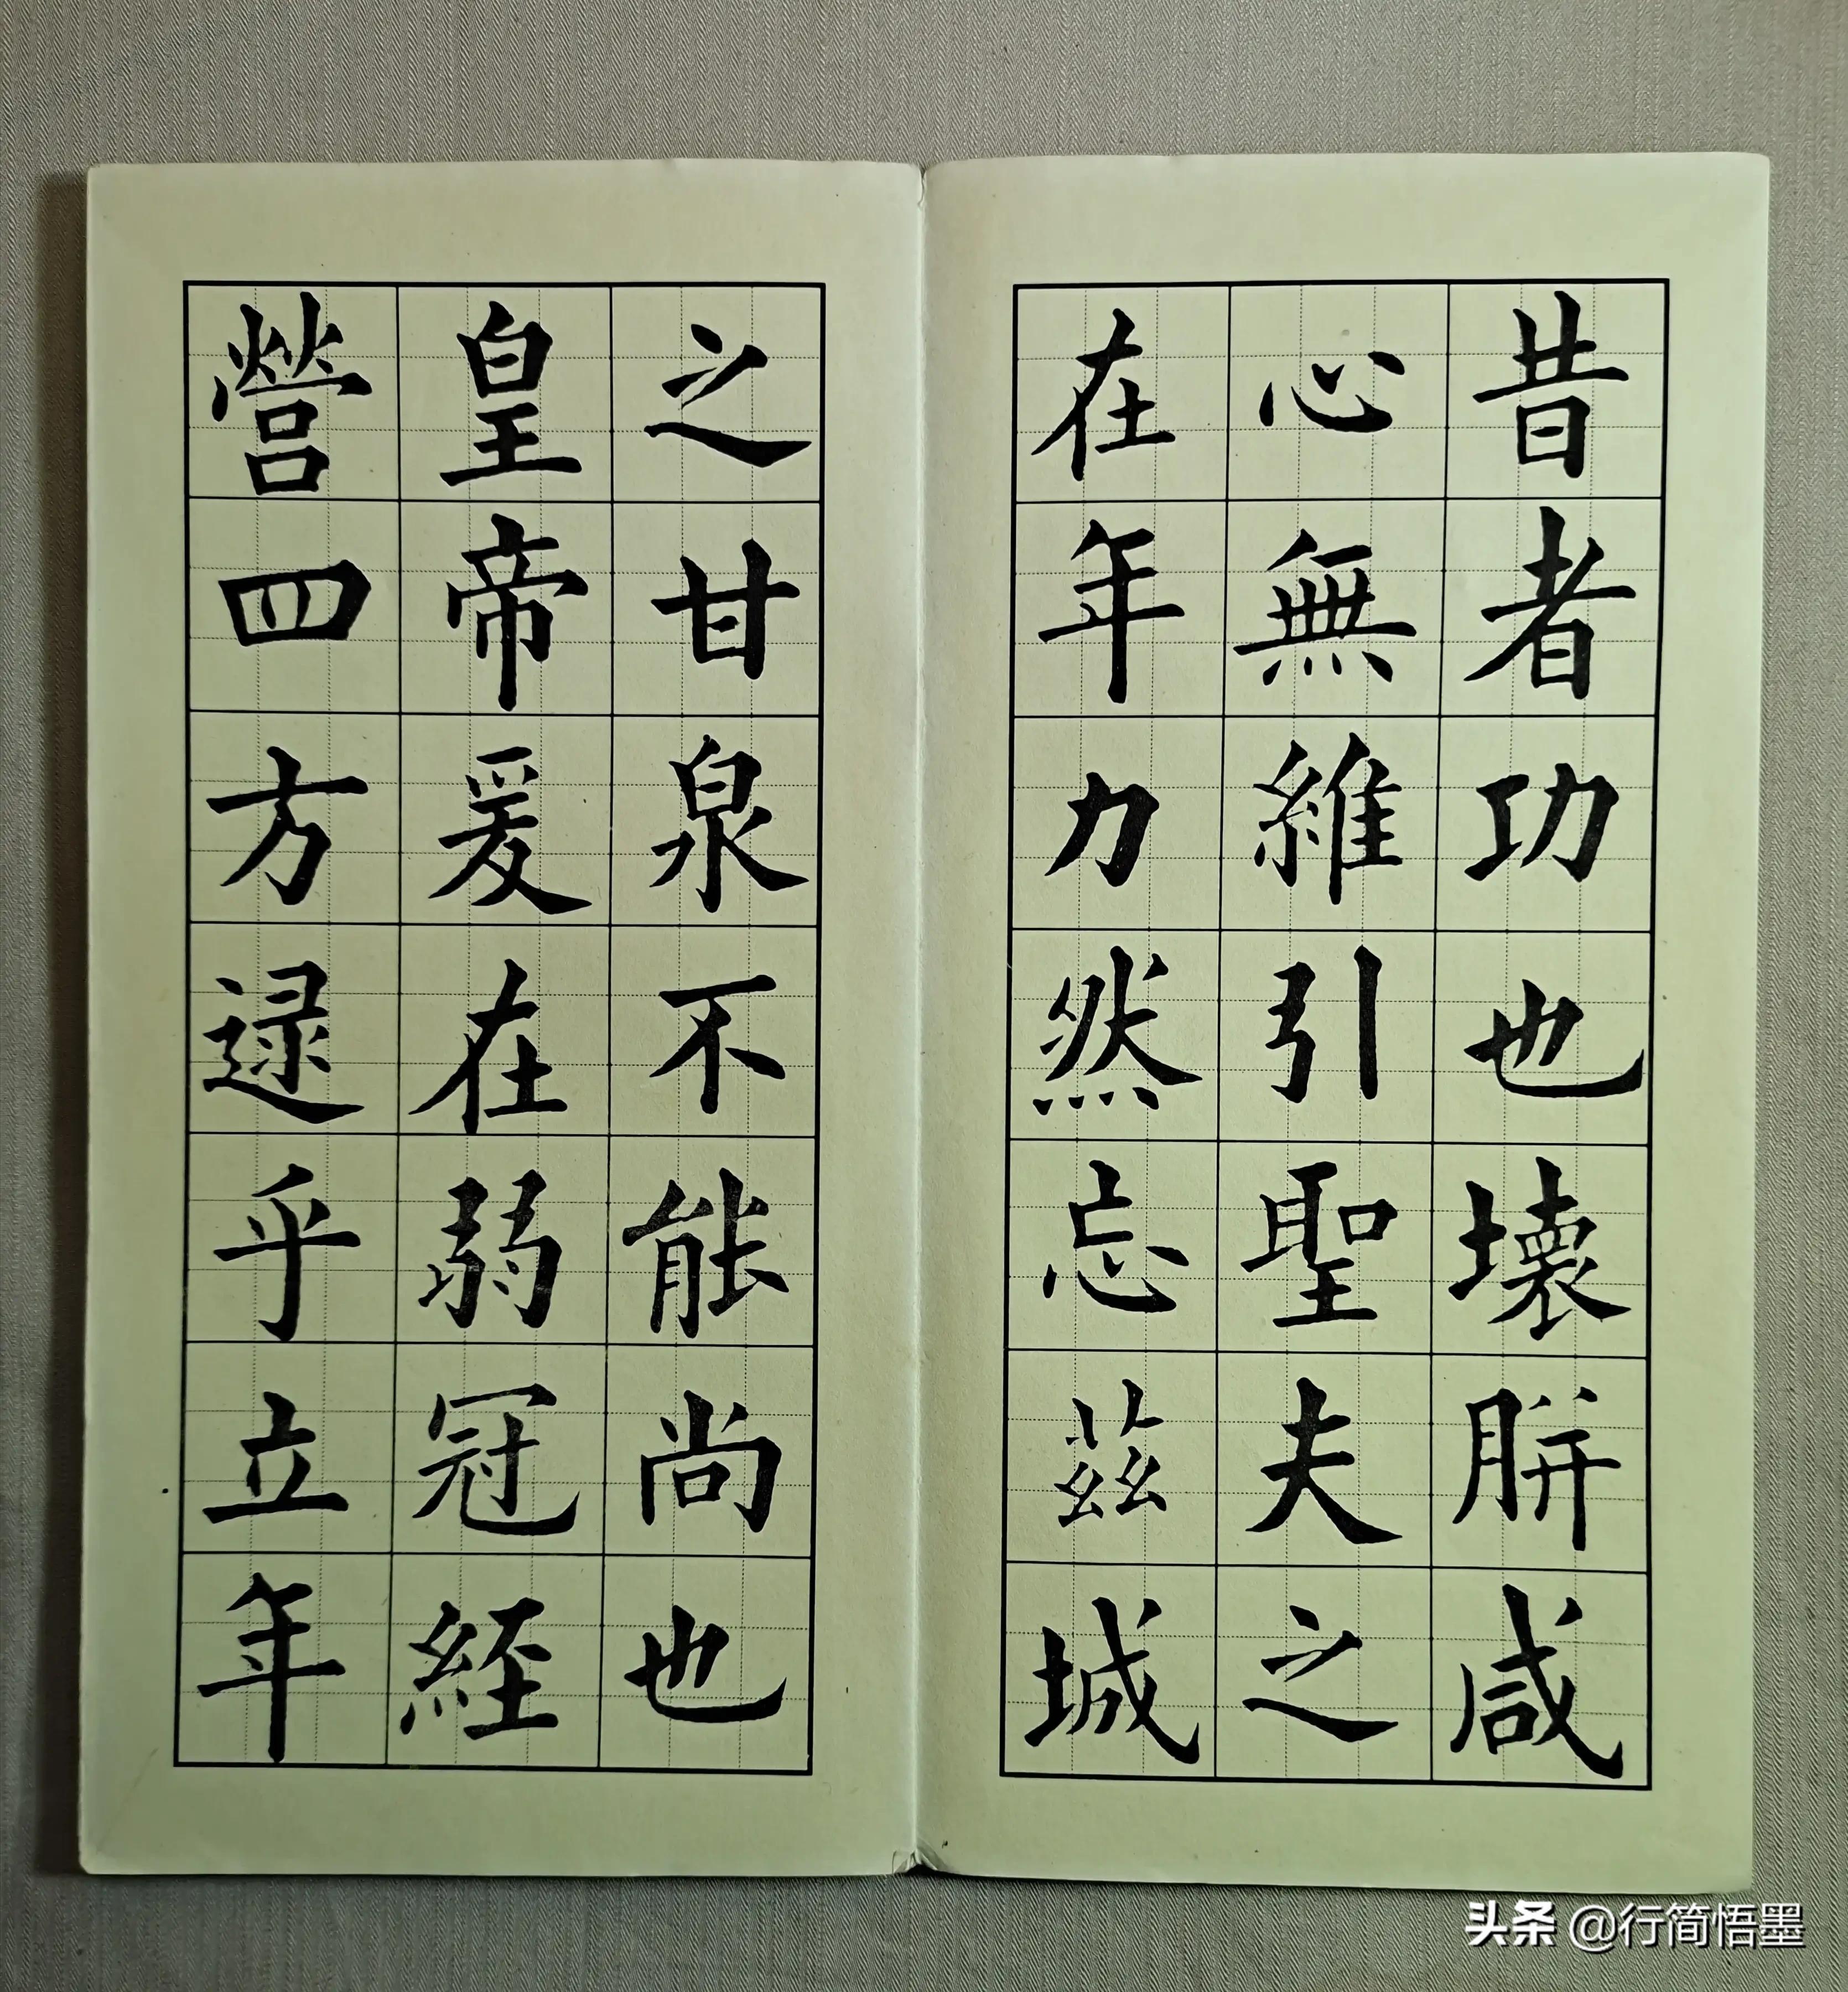 昔者功也壞胼咸
心無維引聖夫之
在年力然忘茲城
之甘泉不能尚也
皇帝爰在弱冠經
營四方逯乎立年
头条 @行简悟墨